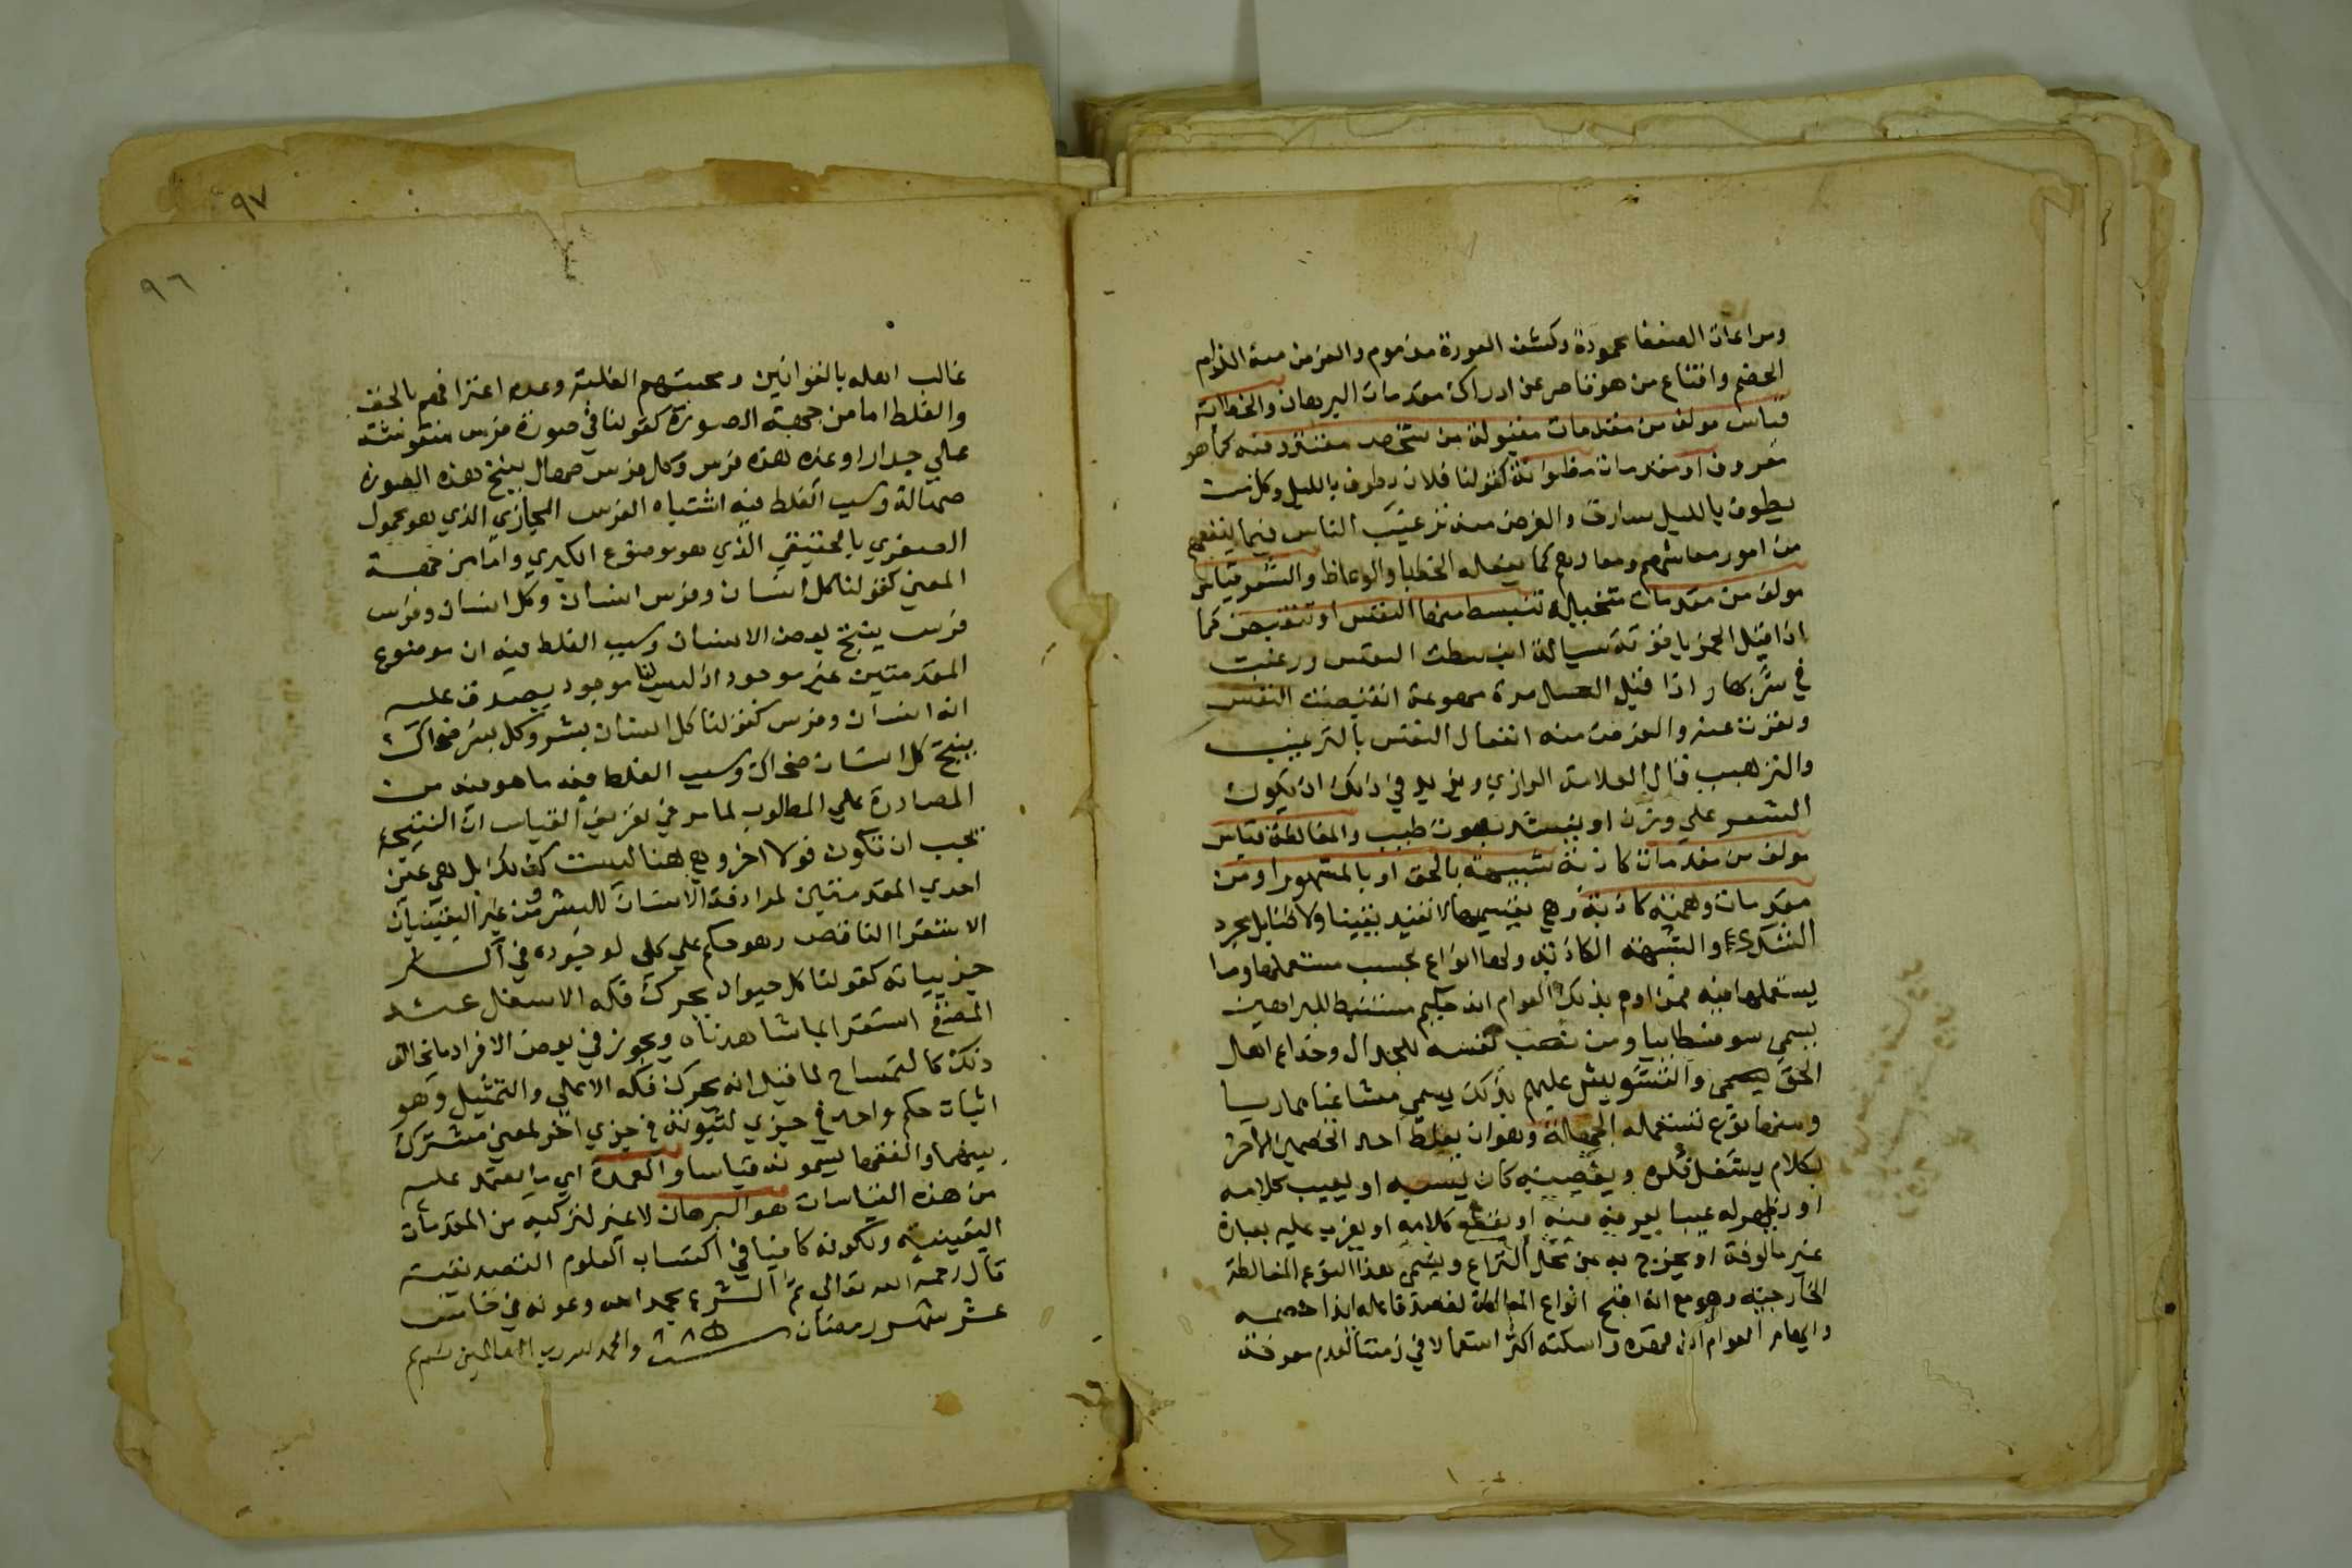 ومراعات الضعفا محمودة وكشف العورة مذموم والغرض منه الزام
الخصم واقناع من هو قاصر عن ادراك مقدمات البرهان والخطابة
قياس مولف من مقدمات مقبولة من شخص معتقد فيه كما هو
معروف او مقدمات مظنونة كقولنا فلان يطوف بالليل وكل من
يطوف بالليل سارق والغرض منه ترغيب الناس فيما ينفعهم
من امور معاشهم ومعادهم كما يفعله الخطبا والوعاظ والشعر قياس
مولف من مقدمات متخيلة تنبسط منها النفس او تنقبض كما
اذا قيل الخمر ياقوتة سيالة انبسطت النفس ورغبت
في شربها واذا قيل العسل مرة مهوعة انقبضت النفس
ونفرت عنه والغرض منه انفعال النفس بالترغيب
والترهيب قال العلامة الرازي ويزيد في ذلك ان يكون
الشعر على وزن او ينشد بصوت طيب والمغالطة قياس
مولف من مقدمات كاذبة شبيهة بالحق او بالمشهور او من
مقدمات وهمية كاذبة وهي بقسميها لا تفيد يقينا ولا ظنا بل مجرد
الشك والشبهة الكاذبة ولها انواع بحسب مستعملها وما
يستعملها فيه فمن اوهم بذلك العوام انه حكيم مستنبط للبراهين
يسمى سوفسطاييا ومن نصب نفسه للجدال وخداع اهل
الحق والتشويش عليهم بذلك يسمى مشاغبا مماريا
ومنها نوع تستعمله الجهالة وهو ان يغلظ احد الخصمين الاخر
بكلام يشغل فكره ويغضبه كان يسبه او يعيب كلامه
او يظهر له عيبا يعرفه فيه او يقطع كلامه او يغرب عليه بعبارة
غير مالوفة او يخرج به عن محل النزاع ويسمى هذا النوع المغالطة
الخارجية وهو مع انه اقبح انواع المغالطة لقصد فاعله ايذا خصمه
وايهام العوام انه قهره واسكته اكثر استعمالا في زمننا لعدم معرفة
٩٧
٩٦
غالب اهله بالقوانين ومحبتهم الغلبة وعدم اعترافهم بالحق
والغلط اما من جهة الصورة كقولنا في صورة فرس منقوشة
على جدار او غيره هذه فرس وكل فرس صهال ينتج هذه الصورة
صهالة وسبب الغلط فيه اشتباه الفرس المجازي الذي هو محمول
الصغري بالحقيقي الذي هو موضوع الكبري واما من جهة
المعني كقولنا كل انسان وفرس انسان وكل انسان وفرس
فرس ينتج بعض الانسان وسبب الغلط فيه ان موضوع
المقدمتين غير موجود اذ ليس لنا موجود يصدق عليه
انه انسان وفرس كقولنا كل انسان بشر وكل بشر ضحاك
ينتج كل انسان ضحاك وسبب الغلط فيه ما هو فيه من
المصادرة علي المطلوب لما مر في تعريف القياس ان النتيجة
يجب ان تكون قولا اخر وهي هنا ليست كذلك بل هي عين
احدي المقدمتين لمرادفة الانسان للبشر ومن غير اليقينيات
الاستقرا الناقص وهو حكم علي كلي لوجوده في اكثر
جزيياته كقولنا كل حيوان يحرك فكه الاسفل عند
المضغ استقرا لما شاهدناه ويجوز في بعض الافراد ما يخالف
ذلك كالتمساح لما قيل انه يحرك فكه الاعلي والتمثيل وهو
اثبات حكم واحد في جزي لثبوته في جزي اخر لمعني مشترك
بينهما والفقها يسمونه قياسا والعمدة اي ما يعتمد عليه
من هذه القياسات هو البرهان لا غير لتركبه من المقدمات
اليقينية ولكونه كافيا في اكتساب العلوم التصديقية
قال رحمه الله تعالى تم الشرح بحمد الله وعونه في خامس
عشر شهر رمضان سنة ٨٨٥ والحمد لله رب العالمين